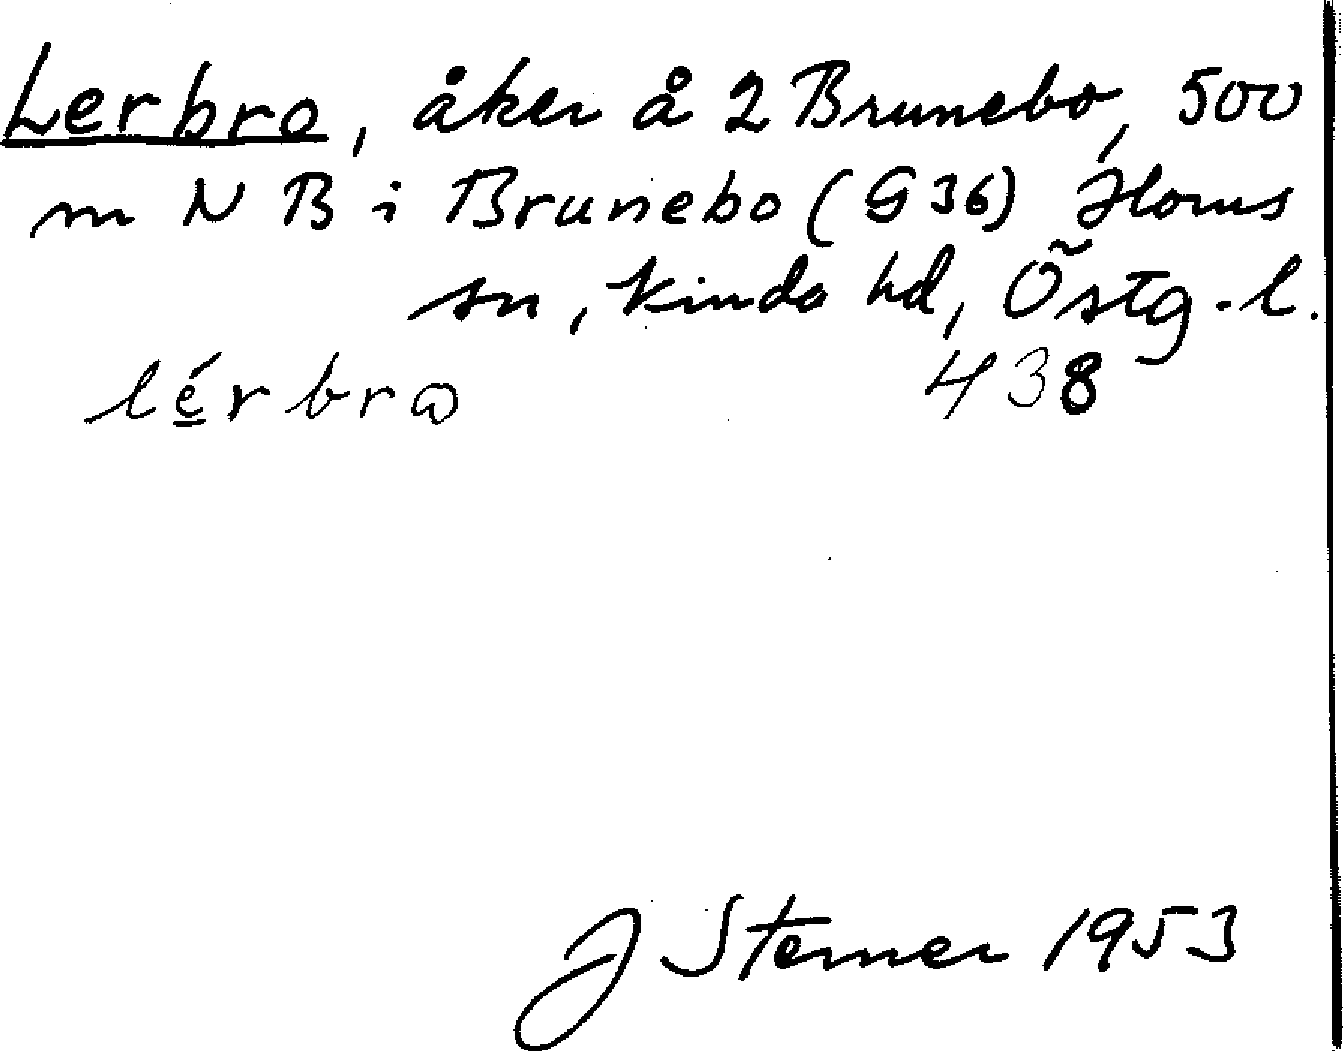 Lerbro, åker å 2 Brunebo, 500
m N B i Brunebo (G36) Horns
sn, Kinda hd, Östg.l.
lé̲rbrɷ 438
J Sterner 1953